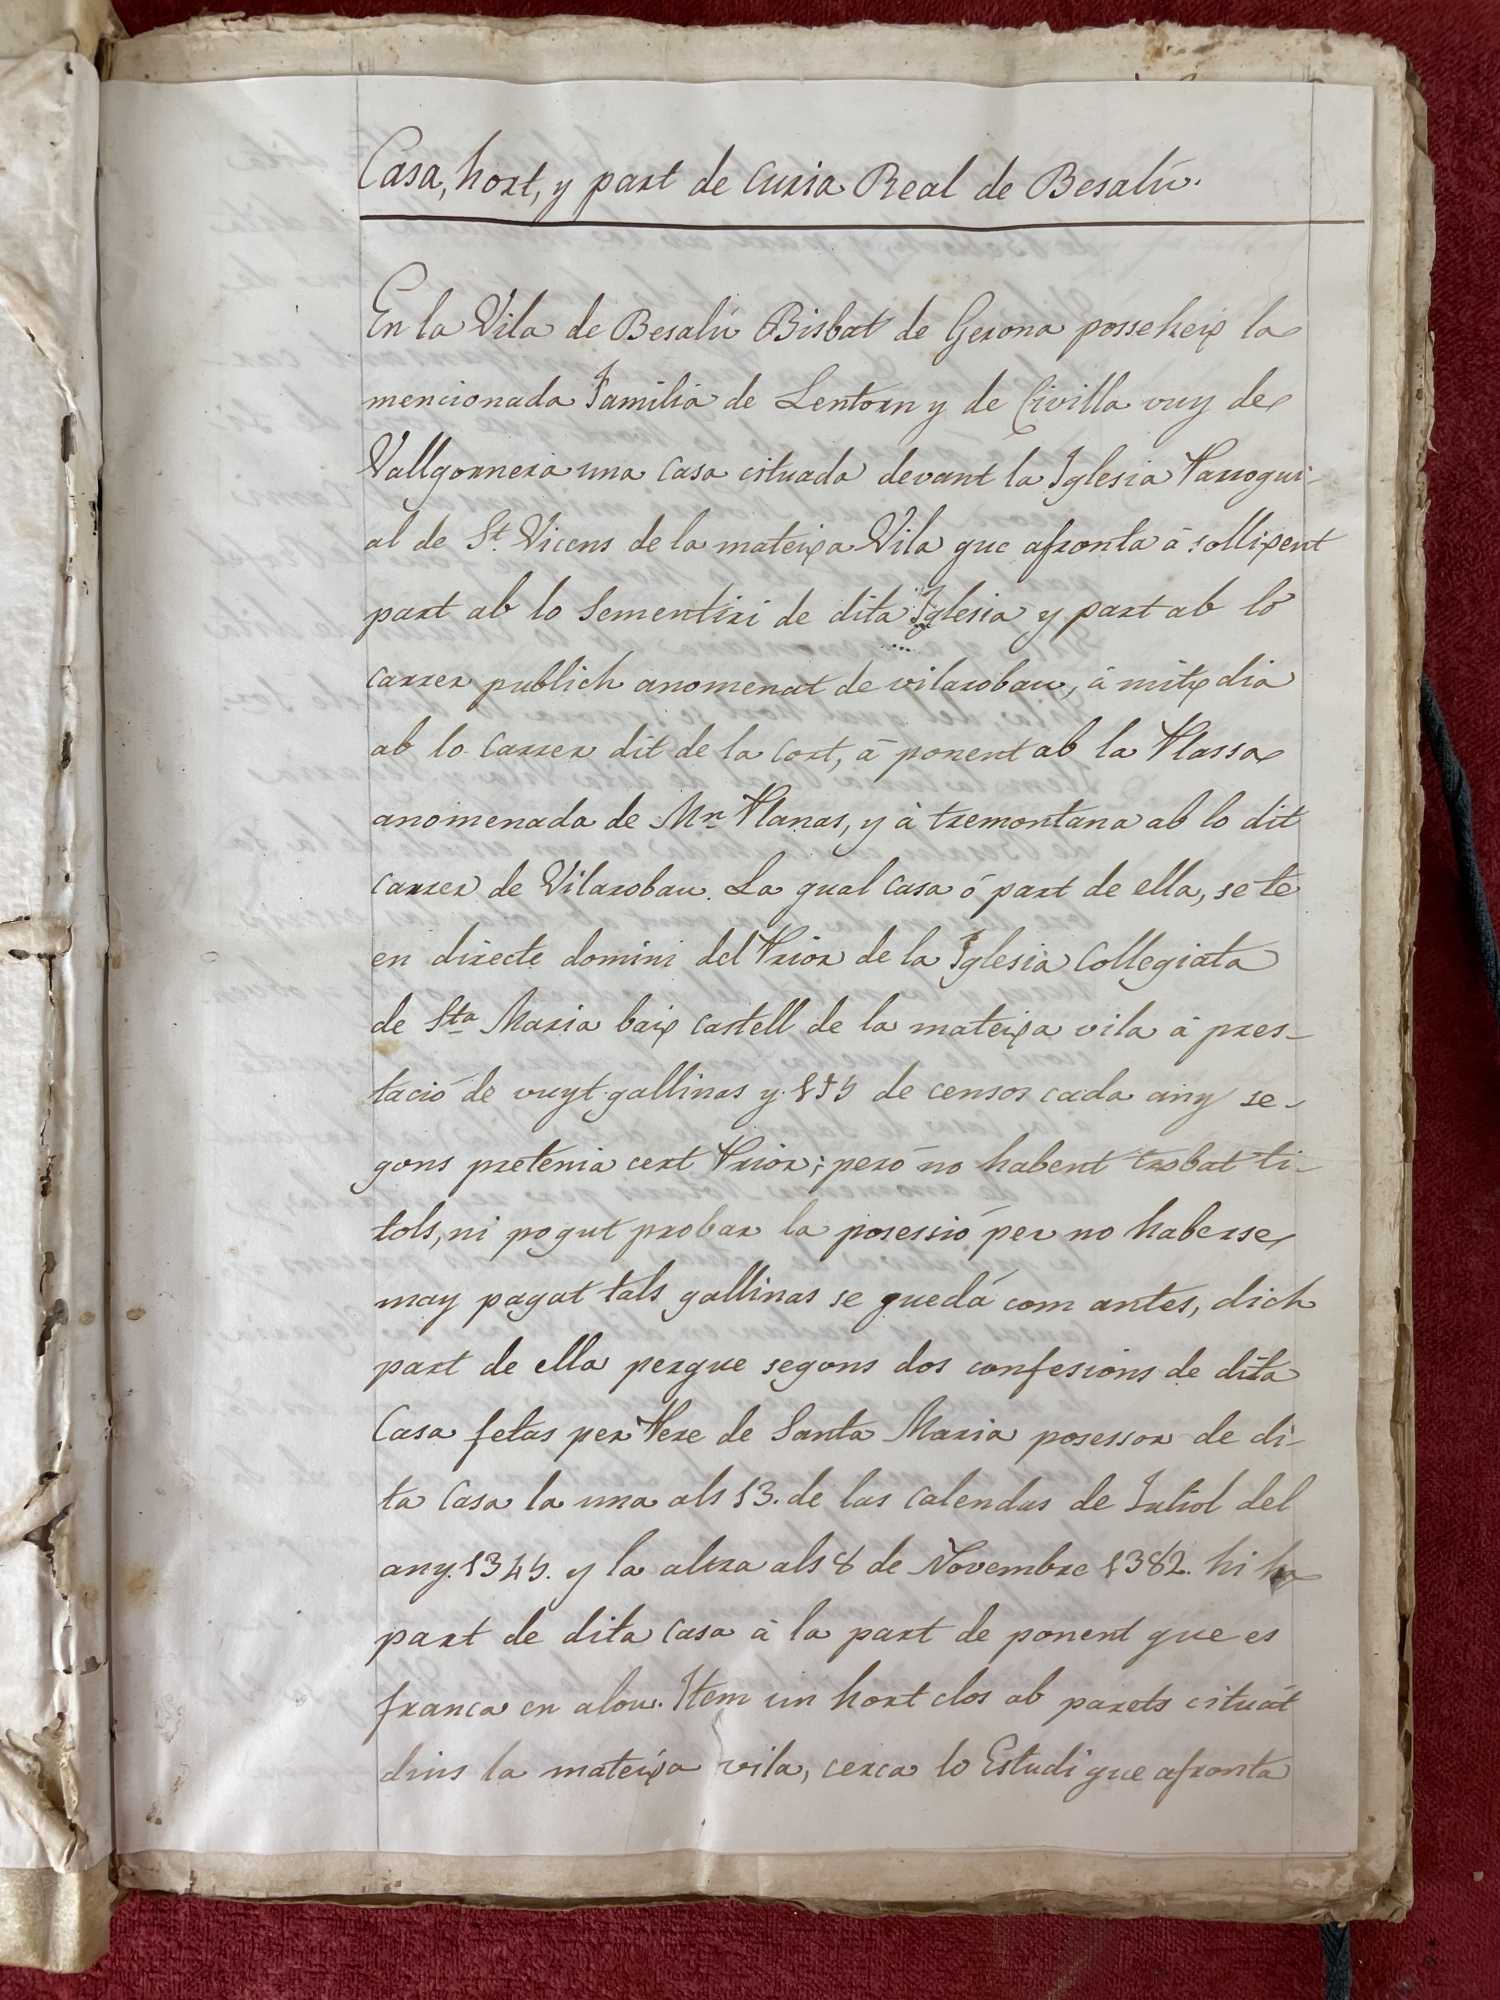 Casa, hort, y part de curia Real de Besalú.
En la Vila de Besalú Bisbat de Gerona posseheix la
mencionada Familia de Lentorn y de Civilla vuy de
Vallgornera una casa cituada devant la Iglesia Parroqui-
al de St. Vicens de la mateixa Vila que afronta á sollixent
part ab lo Sementiri de dita Iglesia y part ab lo
carrer publich anomenat de vilarobau, á mitx dia
ab lo carrer dit de la cort, á ponent ab la Plassa
anomenada de Mn. Planas, y á tremontana ab lo dit
carrer de Vilarobau. La qual casa ó part de ella, se te
en directe domini del Prior de la Iglesia Collegiata
de Sta Maria baix castell de la mateixa vila á pres-
tació de vuyt gallinas y de censos cada any se-
gons pretenia cert Prior; peró no habent trobat ti-
tols, ni pogut probar la posessió per no haberse
may pagat tals gallinas se quedá com antes, dich
part de ella perque segons dos confesions de dita
Casa fetas per Pere de Santa Maria posessor de di-
ta Casa la una als 13. de las calendas de Juliol del
any. 1345. y la altra als 8 de Novembre 1382. hi ha
part de dita casa á la part de ponent que es
franca en alou. Item un hort clos ab parets cituat
dins la mateixa vila, cerca lo Estudi que afronta